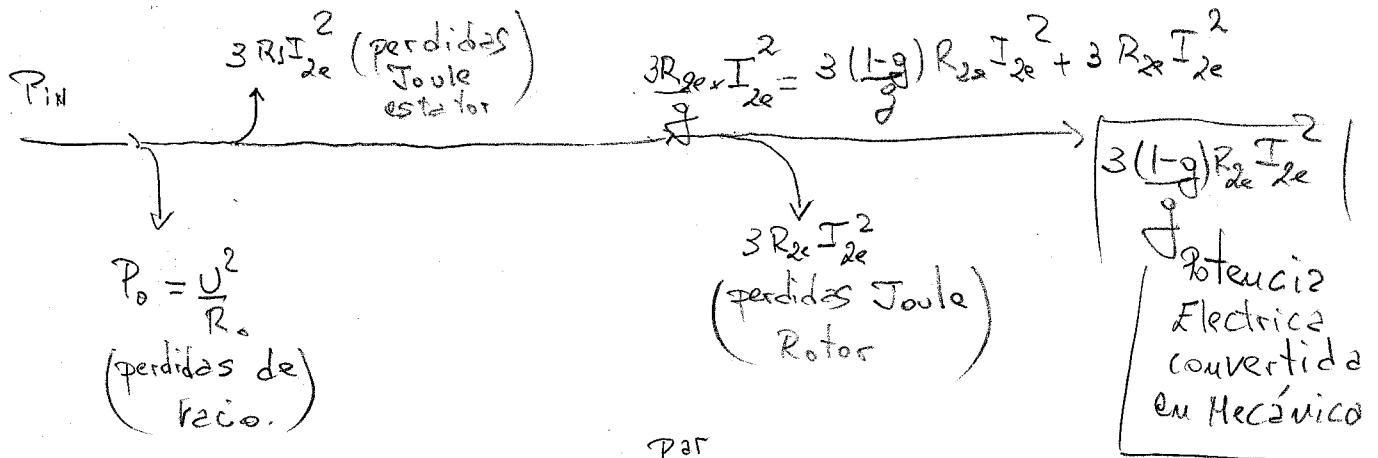 P_IN
3 R_1 I_2e^2 (perdidas
Joule
estator)
3R_2e/g × I_2e^2 = 3 (1-g)/g R_2e I_2e^2 + 3 R_2e I_2e^2
P_o = U^2/R_o
(perdidas de
Vacio.)
3 R_2e I_2e^2
(perdidas Joule
Rotor)
3 (1-g)/g R_2e I_2e^2
Potencia
Electrica
convertida
en Mecánico
par